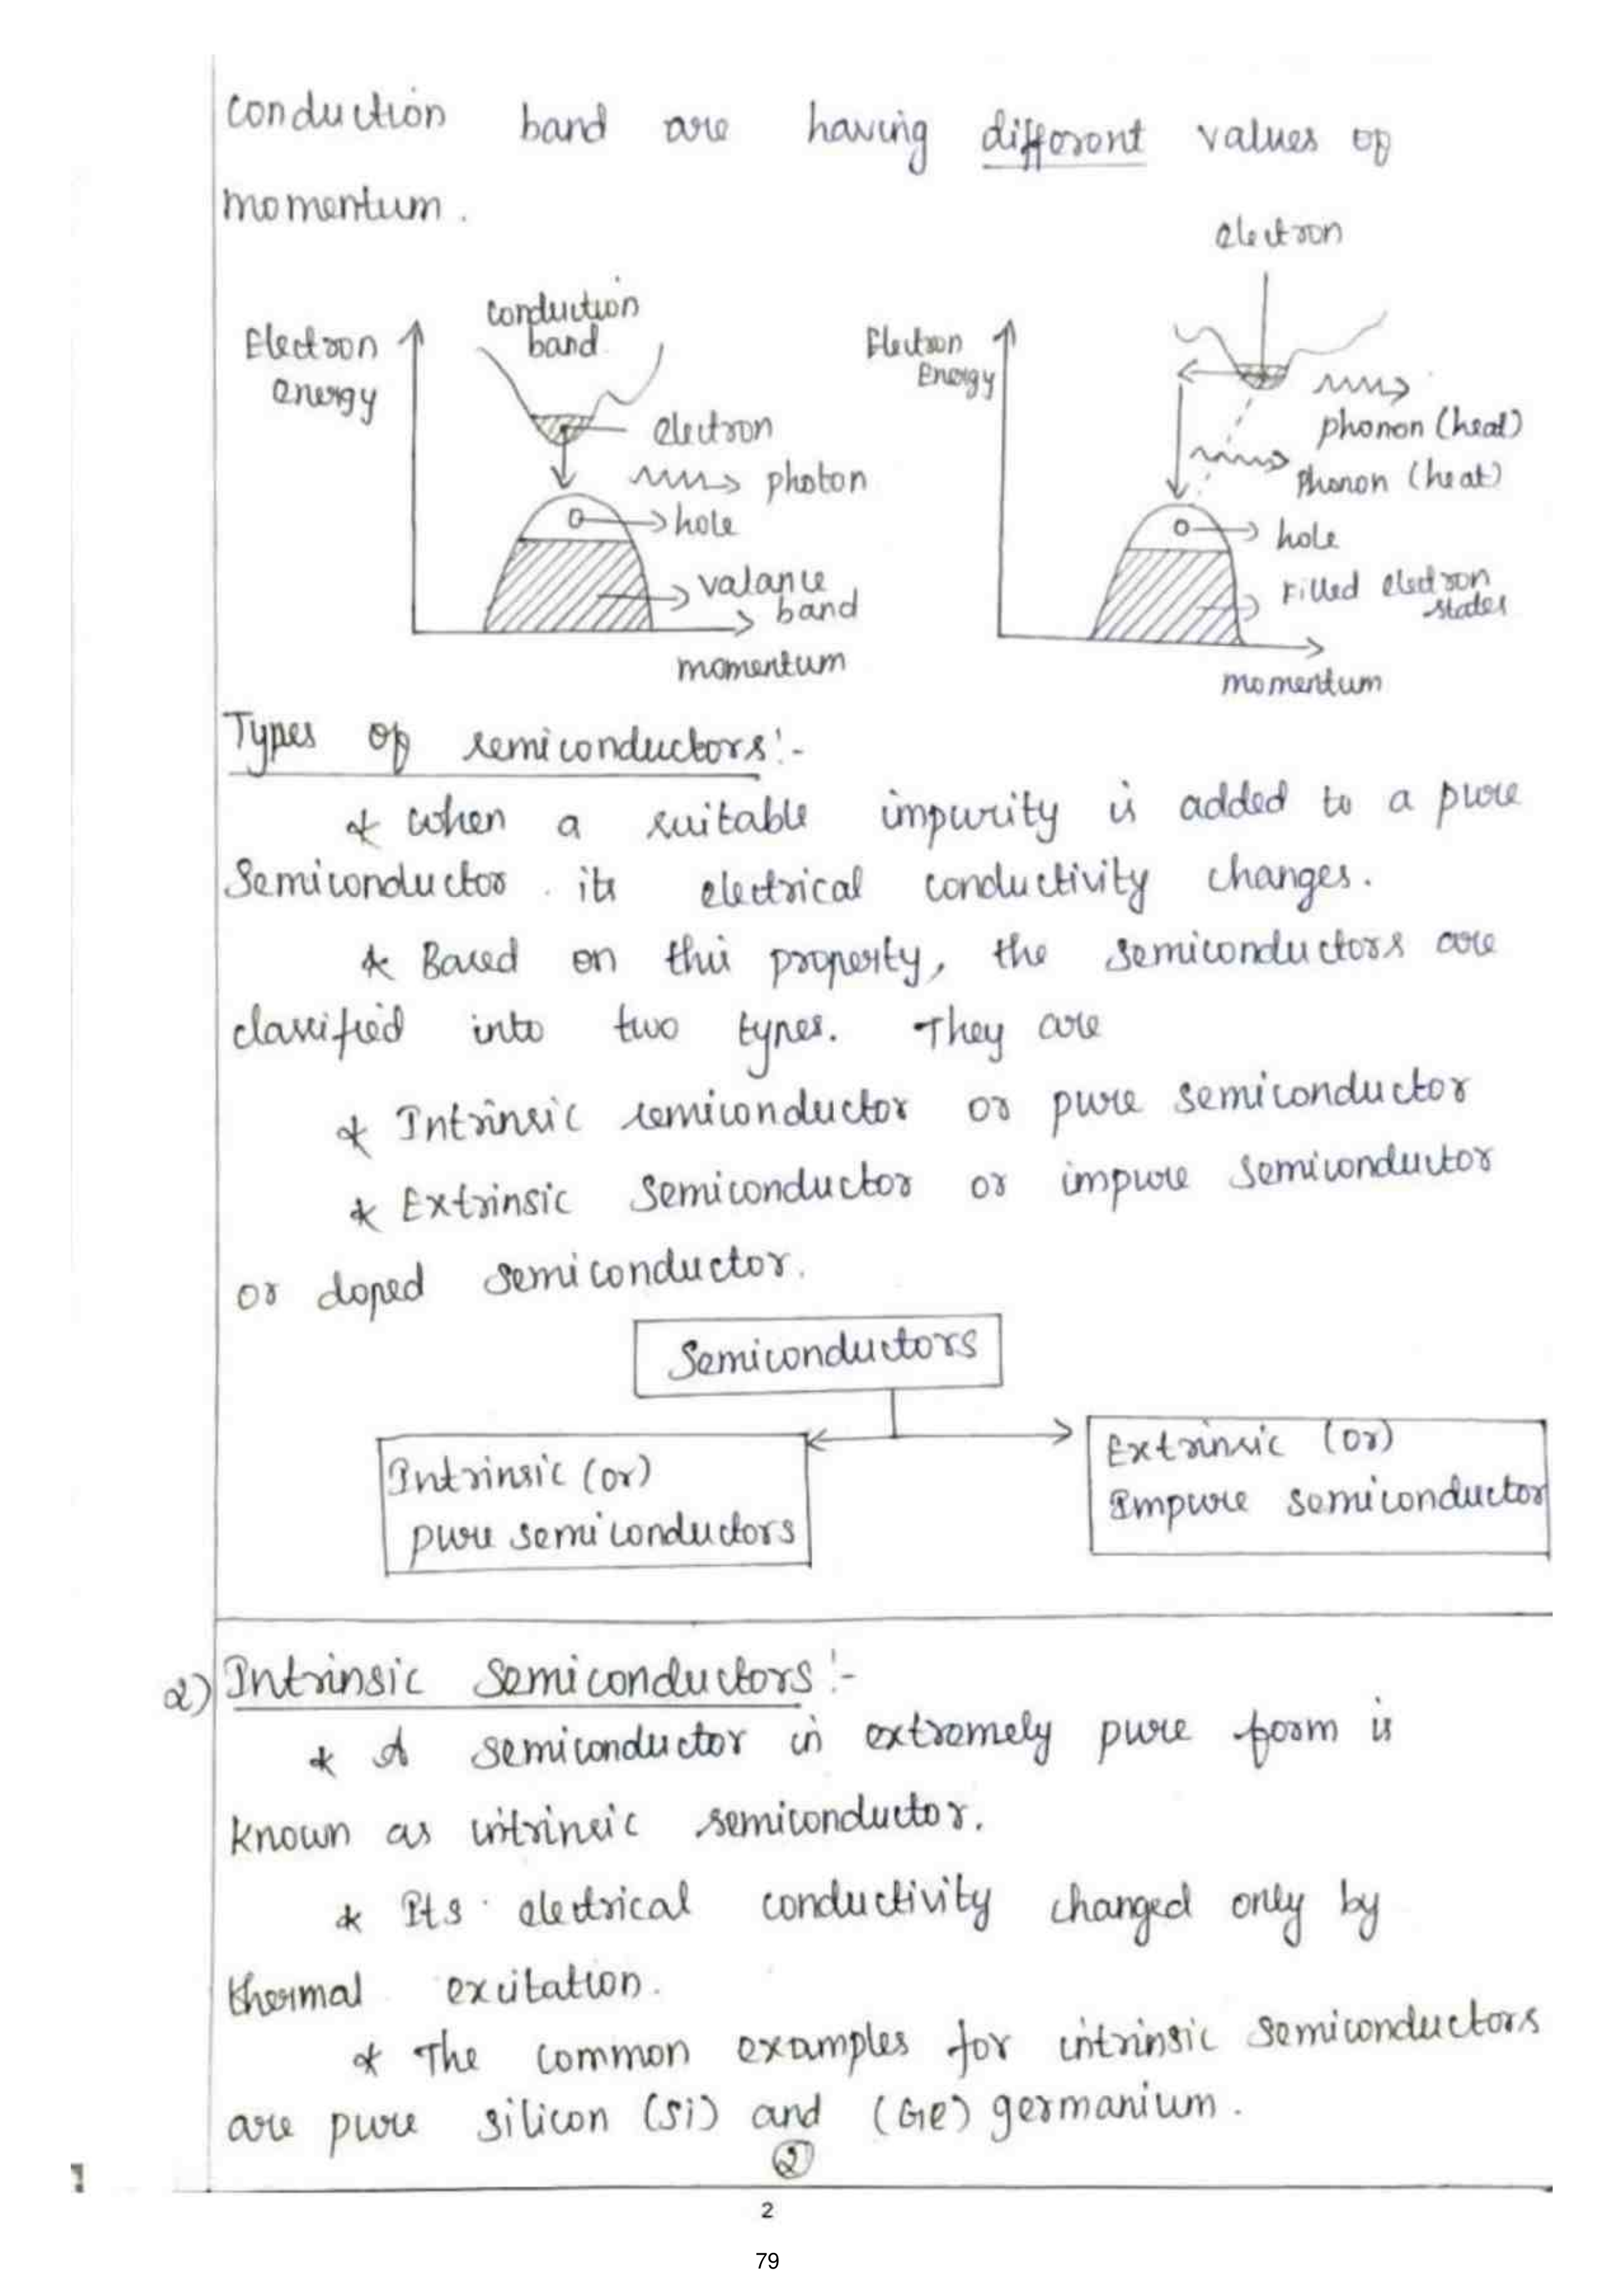 conduction band are having different values of
momentum.
electron
conduction
band
Electron
energy
electron
photon
hole
valance
band
momentum
Electron
Energy
phonon (heat)
Phonon (heat)
hole
Filled electron
states
momentum
Types of semiconductors:-
* When a suitable impurity is added to a pure
Semiconductor its electrical conductivity changes.
* Based on this property, the semiconductors are
classified into two types. They are
* Intrinsic semiconductor or pure semiconductor
* Extrinsic semiconductor or impure semiconductor
or doped semiconductor.
Semiconductors
Intrinsic (or)
pure semiconductors
Extrinsic (or)
Impure semiconductor
2) Intrinsic Semiconductors:-
* A semiconductor in extremely pure form is
known as intrinsic semiconductor.
* Its electrical conductivity changed only by
thermal excitation.
* The common examples for intrinsic semiconductors
are pure silicon (Si) and (Ge) germanium.
2
2
79